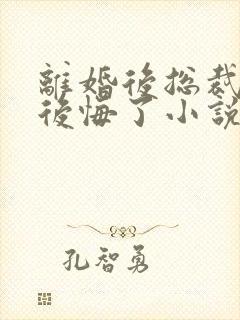 離婚後総裁
後悔了小説
孔智勇